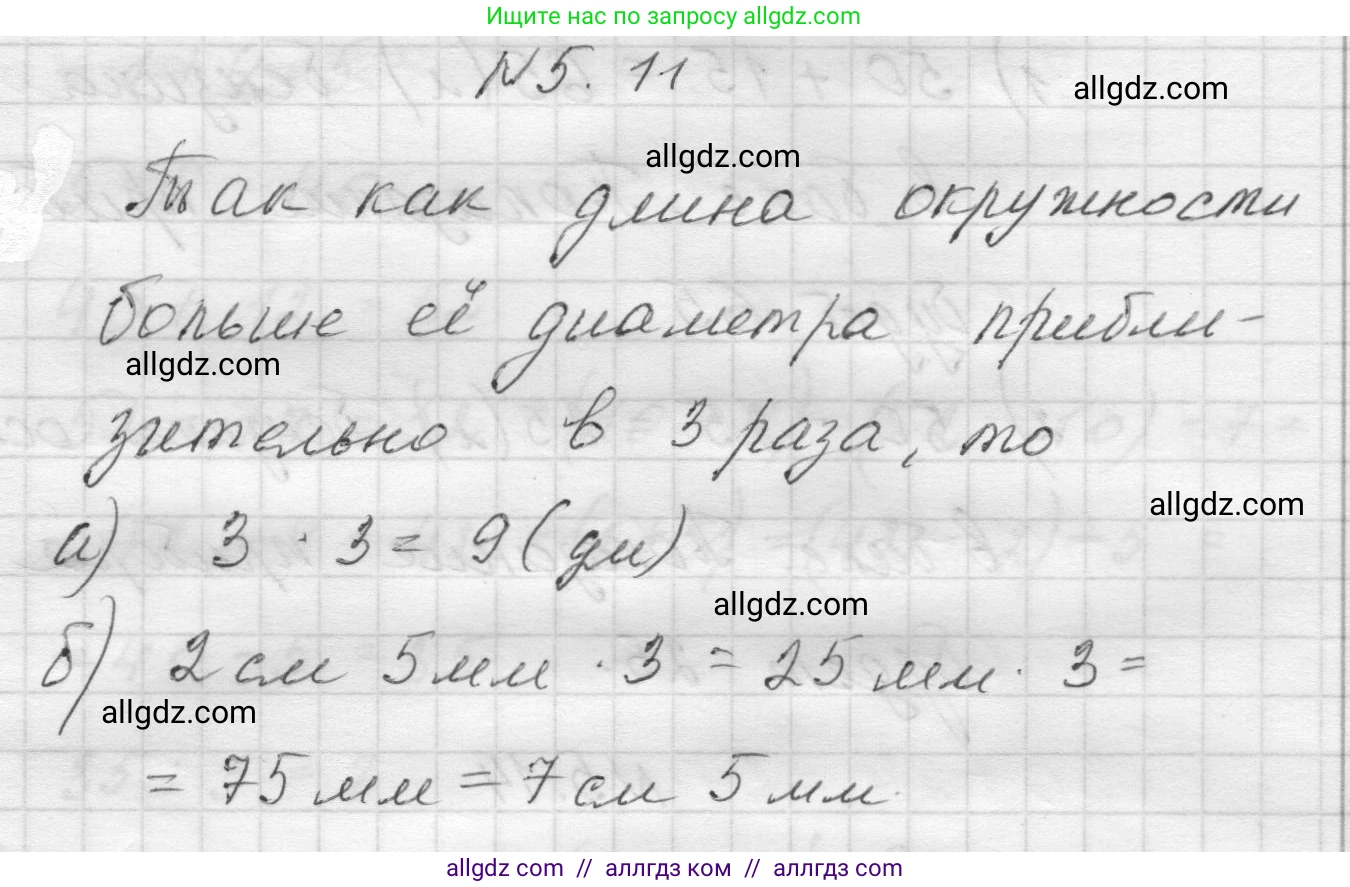 Ищите нас по запросу allgdz.com
N 5. 11
allgdz.com
allgdz.com
Так как длина окружности
больше её диаметра прибли-
allgdz.com
зительно в 3 раза, то
allgdz.com
а) 3 · 3 = 9 (дм)
allgdz.com
б) 2 см 5 мм · 3 = 25 мм · 3 =
allgdz.com
= 75 мм = 7 см 5 мм.
allgdz com // аллгдз ком // аллгдз com